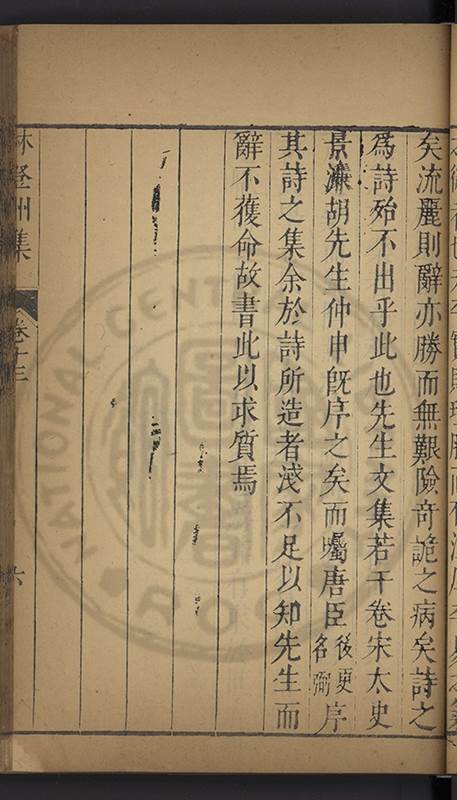 矣流麗則辭亦勝而無艱險奇詭之病矣詩之
為詩殆不出乎此也先生文集若干卷宋太史
景濂胡先生仲申既序之矣而囑唐臣後更名弼序
其詩之集余於詩所造者淺不足以知先生而
辭不獲命故書此以求質焉
林登州集
卷十三
六